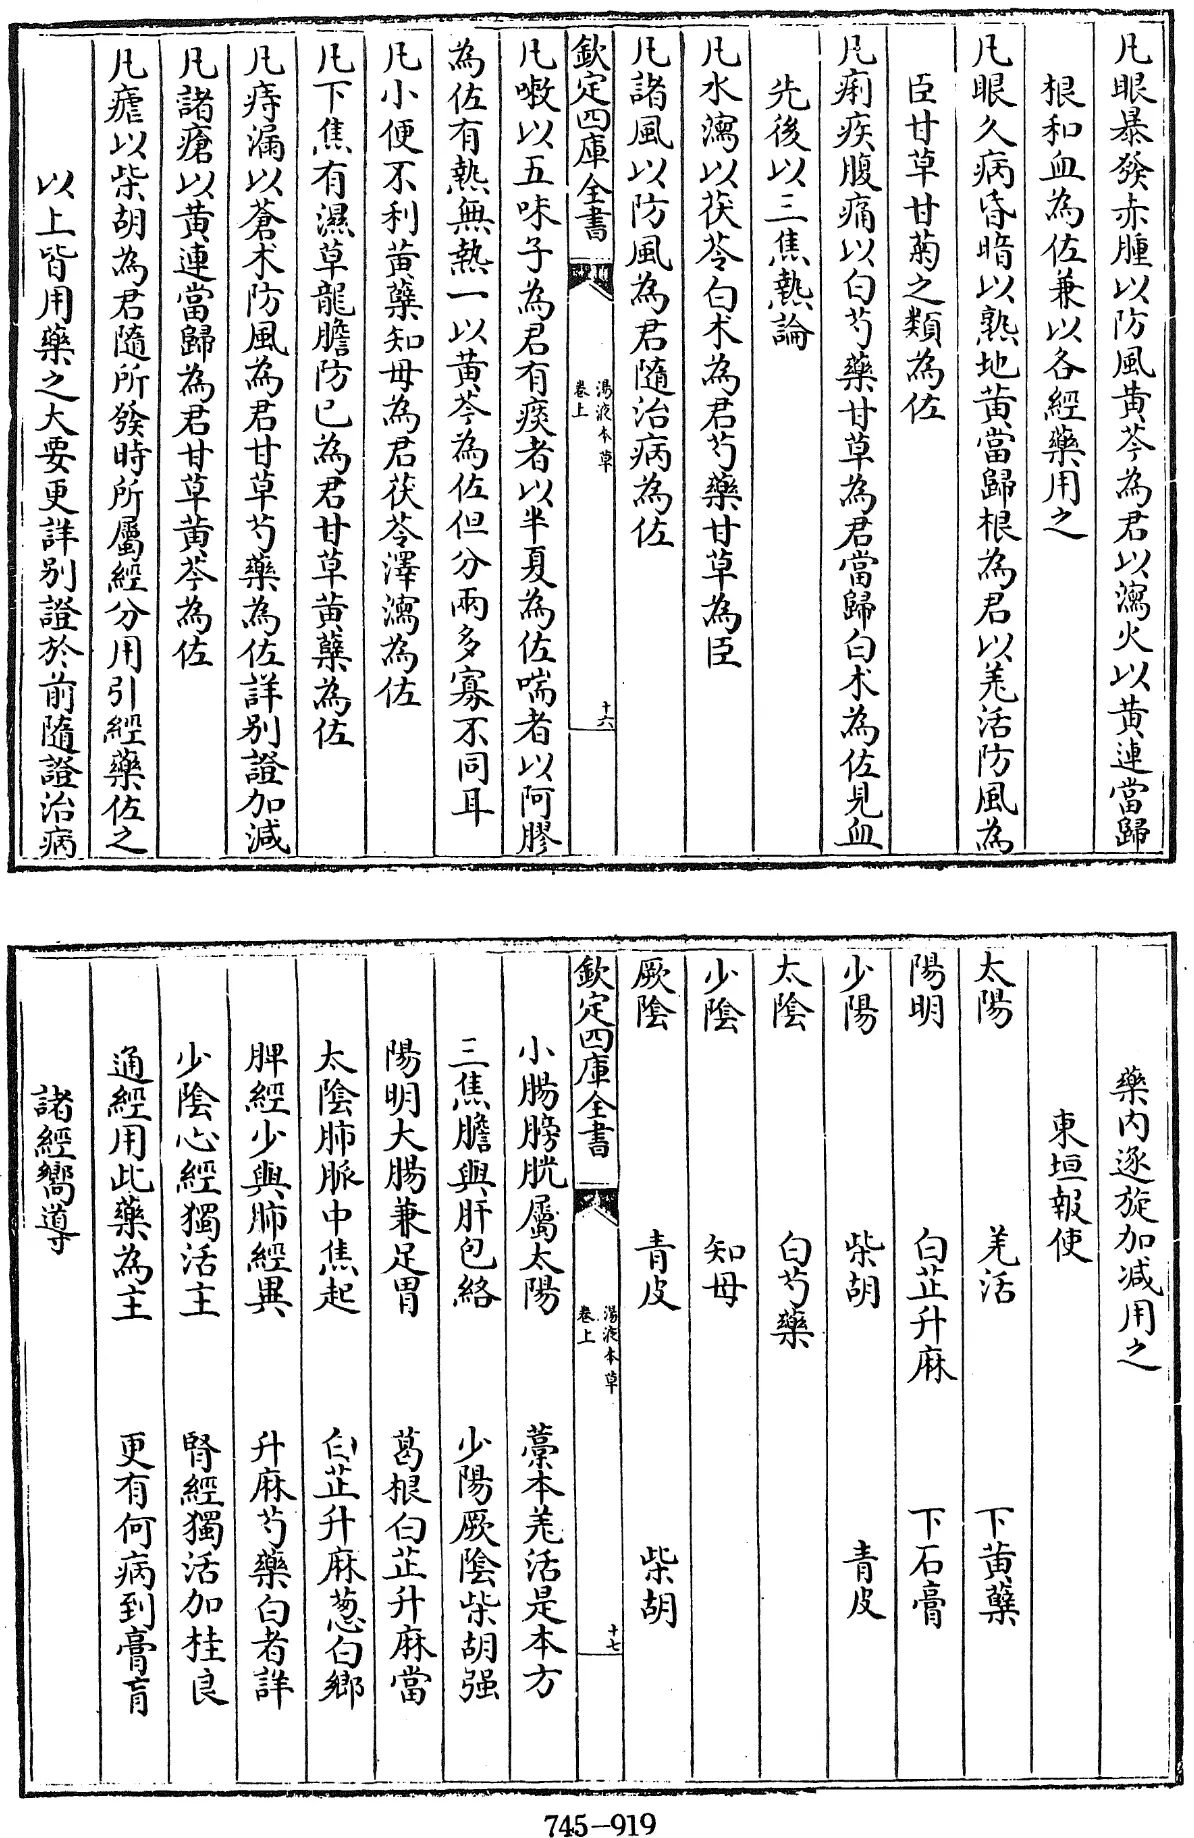 凡眼暴發赤腫以防風黄芩為君以瀉火以黄連當歸
根和血為佐兼以各經藥用之
凡眼久病昏暗以熟地黄當歸根為君以羌活防風為
臣甘草甘菊之類為佐
凡痢疾腹痛以白芍藥甘草為君當歸白术為佐見血
先後以三焦熱論
凡水瀉以茯苓白术為君芍藥甘草為臣
凡諸風以防風為君隨治病為佐
欽定四庫全書
湯液本草
卷上
十六
凡嗽以五味子為君有痰者以半夏為佐喘者以阿膠
為佐有熱無熱一以黄芩為佐但分兩多寡不同耳
凡小便不利黄蘗知母為君茯苓澤瀉為佐
凡下焦有濕草龍膽防已為君甘草黄蘗為佐
凡痔漏以蒼术防風為君甘草芍藥為佐詳别證加減
凡諸瘡以黄連當歸為君甘草黄芩為佐
凡瘧以柴胡為君隨所發時所屬經分用引經藥佐之
以上皆用藥之大要更詳别證於前隨證治病
藥内逐旋加減用之
東垣報使
太陽 羌活 下黄蘗
陽明 白芷升麻 下石膏
少陽 柴胡 青皮
太陰 白芍藥
少陰 知母
厥陰 青皮 柴胡
欽定四庫全書
湯液本草
卷上
十七
小腸膀胱屬太陽 藁本羌活是本方
三焦膽與肝包絡 少陽厥陰柴胡强
陽明大腸兼足胃 葛根白芷升麻當
太陰肺脈中焦起 白芷升麻葱白鄉
脾經少與肺經異 升麻芍藥白者詳
少陰心經獨活主 腎經獨活加桂良
通經用此藥為主 更有何病到膏肓
諸經嚮導
745-919